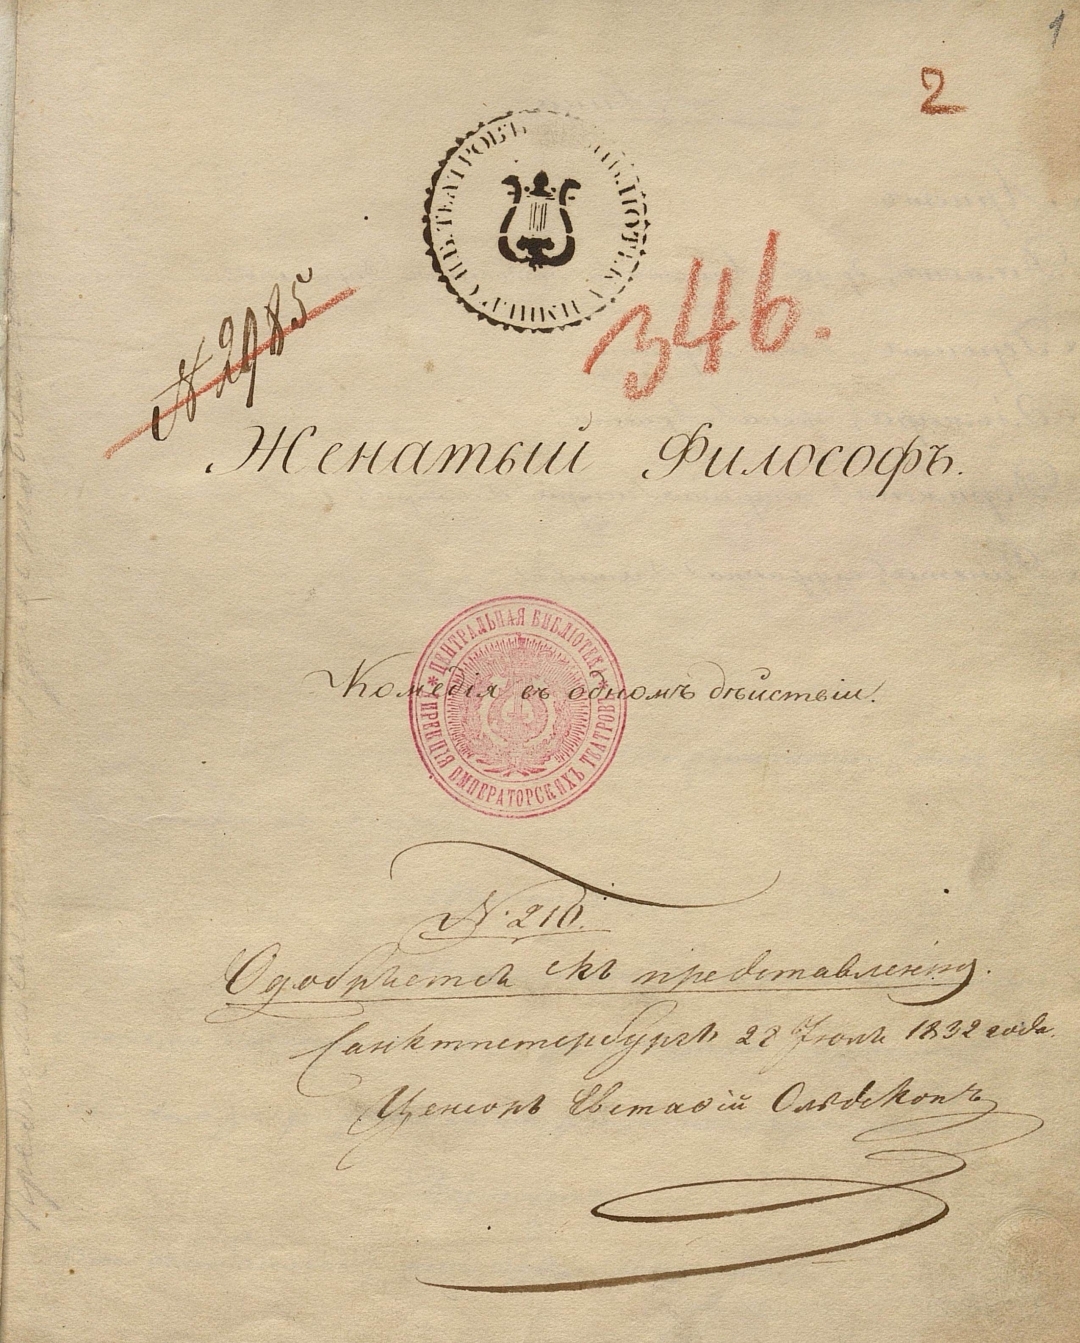 1
2
БИБЛІОТЕКА ИМПЕР. СПБ. ТЕАТРОВЪ
N 2985
346.
Женатый Философъ.
ЦЕНТРАЛЬНАЯ БИБЛІОТЕКА
Комедія въ одномъ дѣйствіи.
ДИРЕКЦІЯ ИМПЕРАТОРСКИХЪ ТЕАТРОВЪ
N. 210.
Одобряется къ представленію.
Санктпетербургъ 28 Іюля 1832 года.
Ценсоръ Евстафій Ольдекопъ